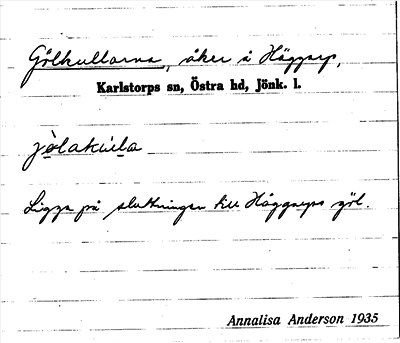 Gölkullarna, åker å Häggarp,
Karlstorps sn, Östra hd, Jönk. l.
Ligga på sluttningen till Häggarps göl.
Annalisa Anderson 1935